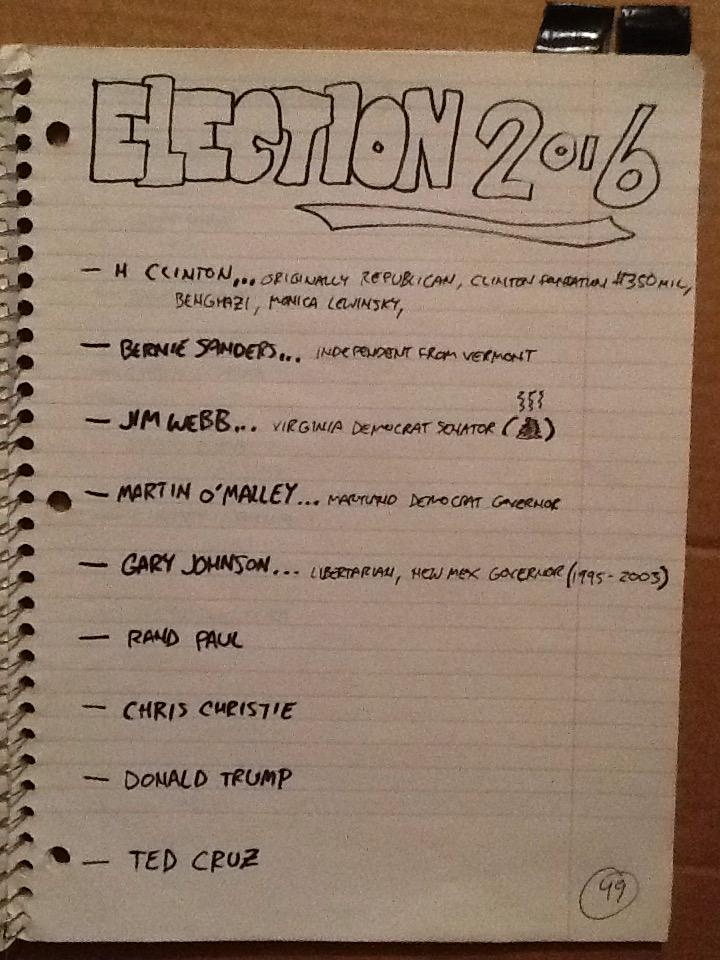 ELECTION 2016
— H CLINTON... ORIGINALLY REPUBLICAN, CLINTON FOUNDATION $350 MIL,
BENGHAZI, MONICA LEWINSKY,
— BERNIE SANDERS... INDEPENDENT FROM VERMONT
— JIM WEBB... VIRGINIA DEMOCRAT SENATOR ( )
— MARTIN O'MALLEY... MARYLAND DEMOCRAT GOVERNOR
— GARY JOHNSON... LIBERTARIAN, NEW MEX GOVERNOR (1995-2003)
— RAND PAUL
— CHRIS CHRISTIE
— DONALD TRUMP
— TED CRUZ
49